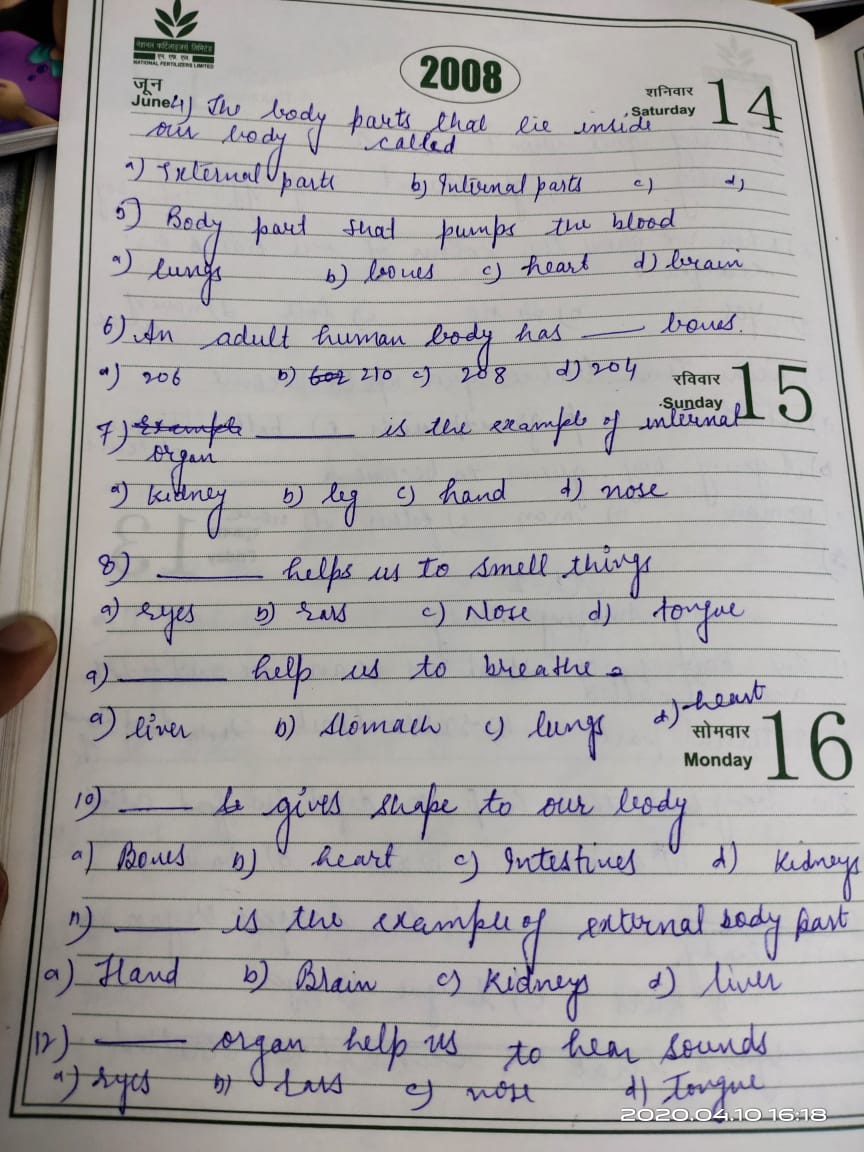 नेशनल फर्टिलाइजर्स लिमिटेड
एन. एफ. एल.
NATIONAL FERTILIZERS LIMITED
2008
जून
June
शनिवार
Saturday 14
4) The body parts that lie inside
our body called
a) External parts b) Internal parts c) d)
5) Body part that pumps the blood
a) lungs b) bones c) heart d) brain
6) An adult human body has ___ bones.
a) 206 b) 602 210 c) 208 d) 204
रविवार
Sunday 15
7) Example ___ is the example of internal
organ
a) kidney b) leg c) hand d) nose
8) ___ helps us to smell things
a) Eyes b) Ears c) Nose d) tongue
9) ___ help us to breathe.
a) liver b) Stomach c) lungs d) heart
सोमवार
Monday 16
10) ___ gives shape to our body
a) Bones b) heart c) Intestines d) kidneys
11) ___ is the example of external body part
a) Hand b) Brain c) kidneys d) liver
12) ___ organ help us to hear sounds
a) Eyes b) Ears c) nose d) Tongue
2020.04.10 16:18